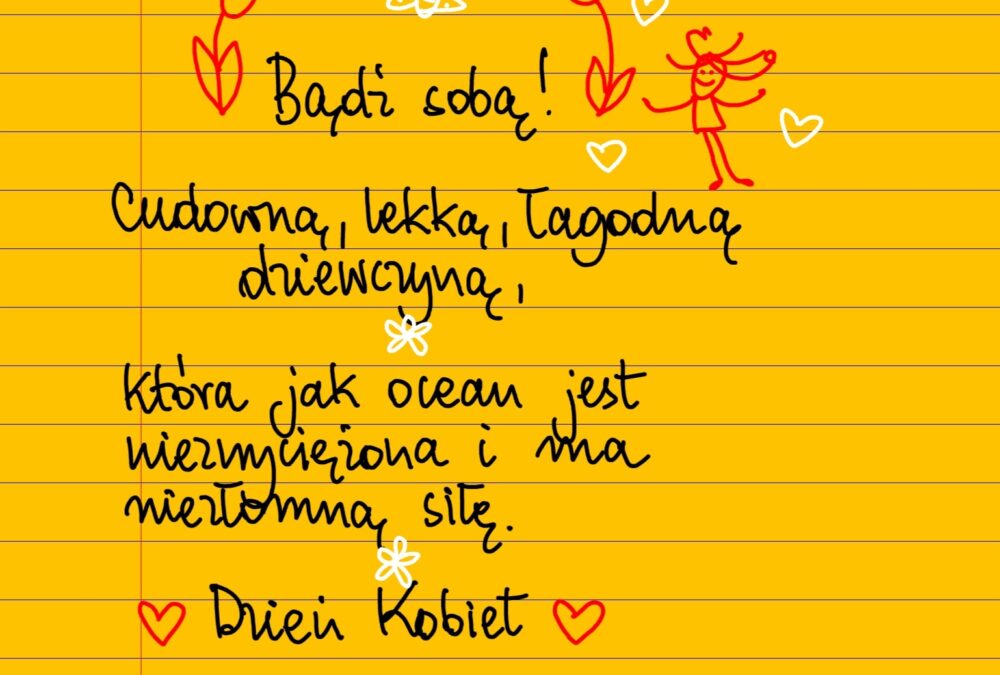 Bądź sobą!
Cudowną, lekką, łagodną
dziewczyną,
która jak ocean jest
niezwyciężona i ma
niezłomną siłę.
Dzień Kobiet